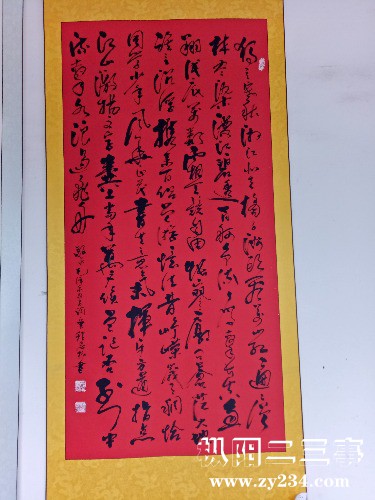 独立寒秋湘江北去橘子洲头看万山红遍层
林尽染漫江碧透百舸争流鹰击长空鱼
翔浅底万类霜天竞自由怅寥廓问苍茫大地
谁主沉浮携来百侣曾游忆往昔峥嵘岁月稠恰
同学少年风华正茂书生意气挥斥方遒指点
江山激扬文字粪土当年万户侯曾记否到中
流击水浪遏飞舟
毛泽东 词 书
枞阳二三事
www.zy234.com